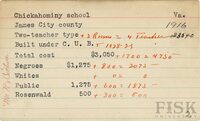 Chickahominy school Va.
James City county 1916
Two-teacher type + 2 Rooms
Built under C. U. B. 1928-29
Total cost $3,050 + 1700 = 4750
Negroes $1,275 + 800 = 2075
Whites
Public 1,275 + 600 = 1875
Rosenwald 500 + 300 = 800
FISK
UNIVERSITY